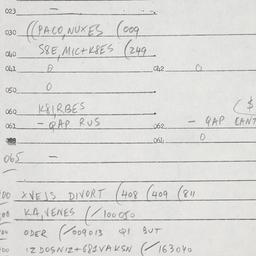 023 —
030 ((PACO,NUXES (009
040 S8E,MIC+K8ES (249
041 0 042 0
050 0
060 K81,RBES ($
061 - QAP RUS 062 - QAP EANT
064 0
065 —
00 XVE1S DIVORT (408 (409 (811
KA,VENES (/100050
ODER (/009013 Q1 BUT
00 1ZDOSN1Z+681VAKSN (/163040